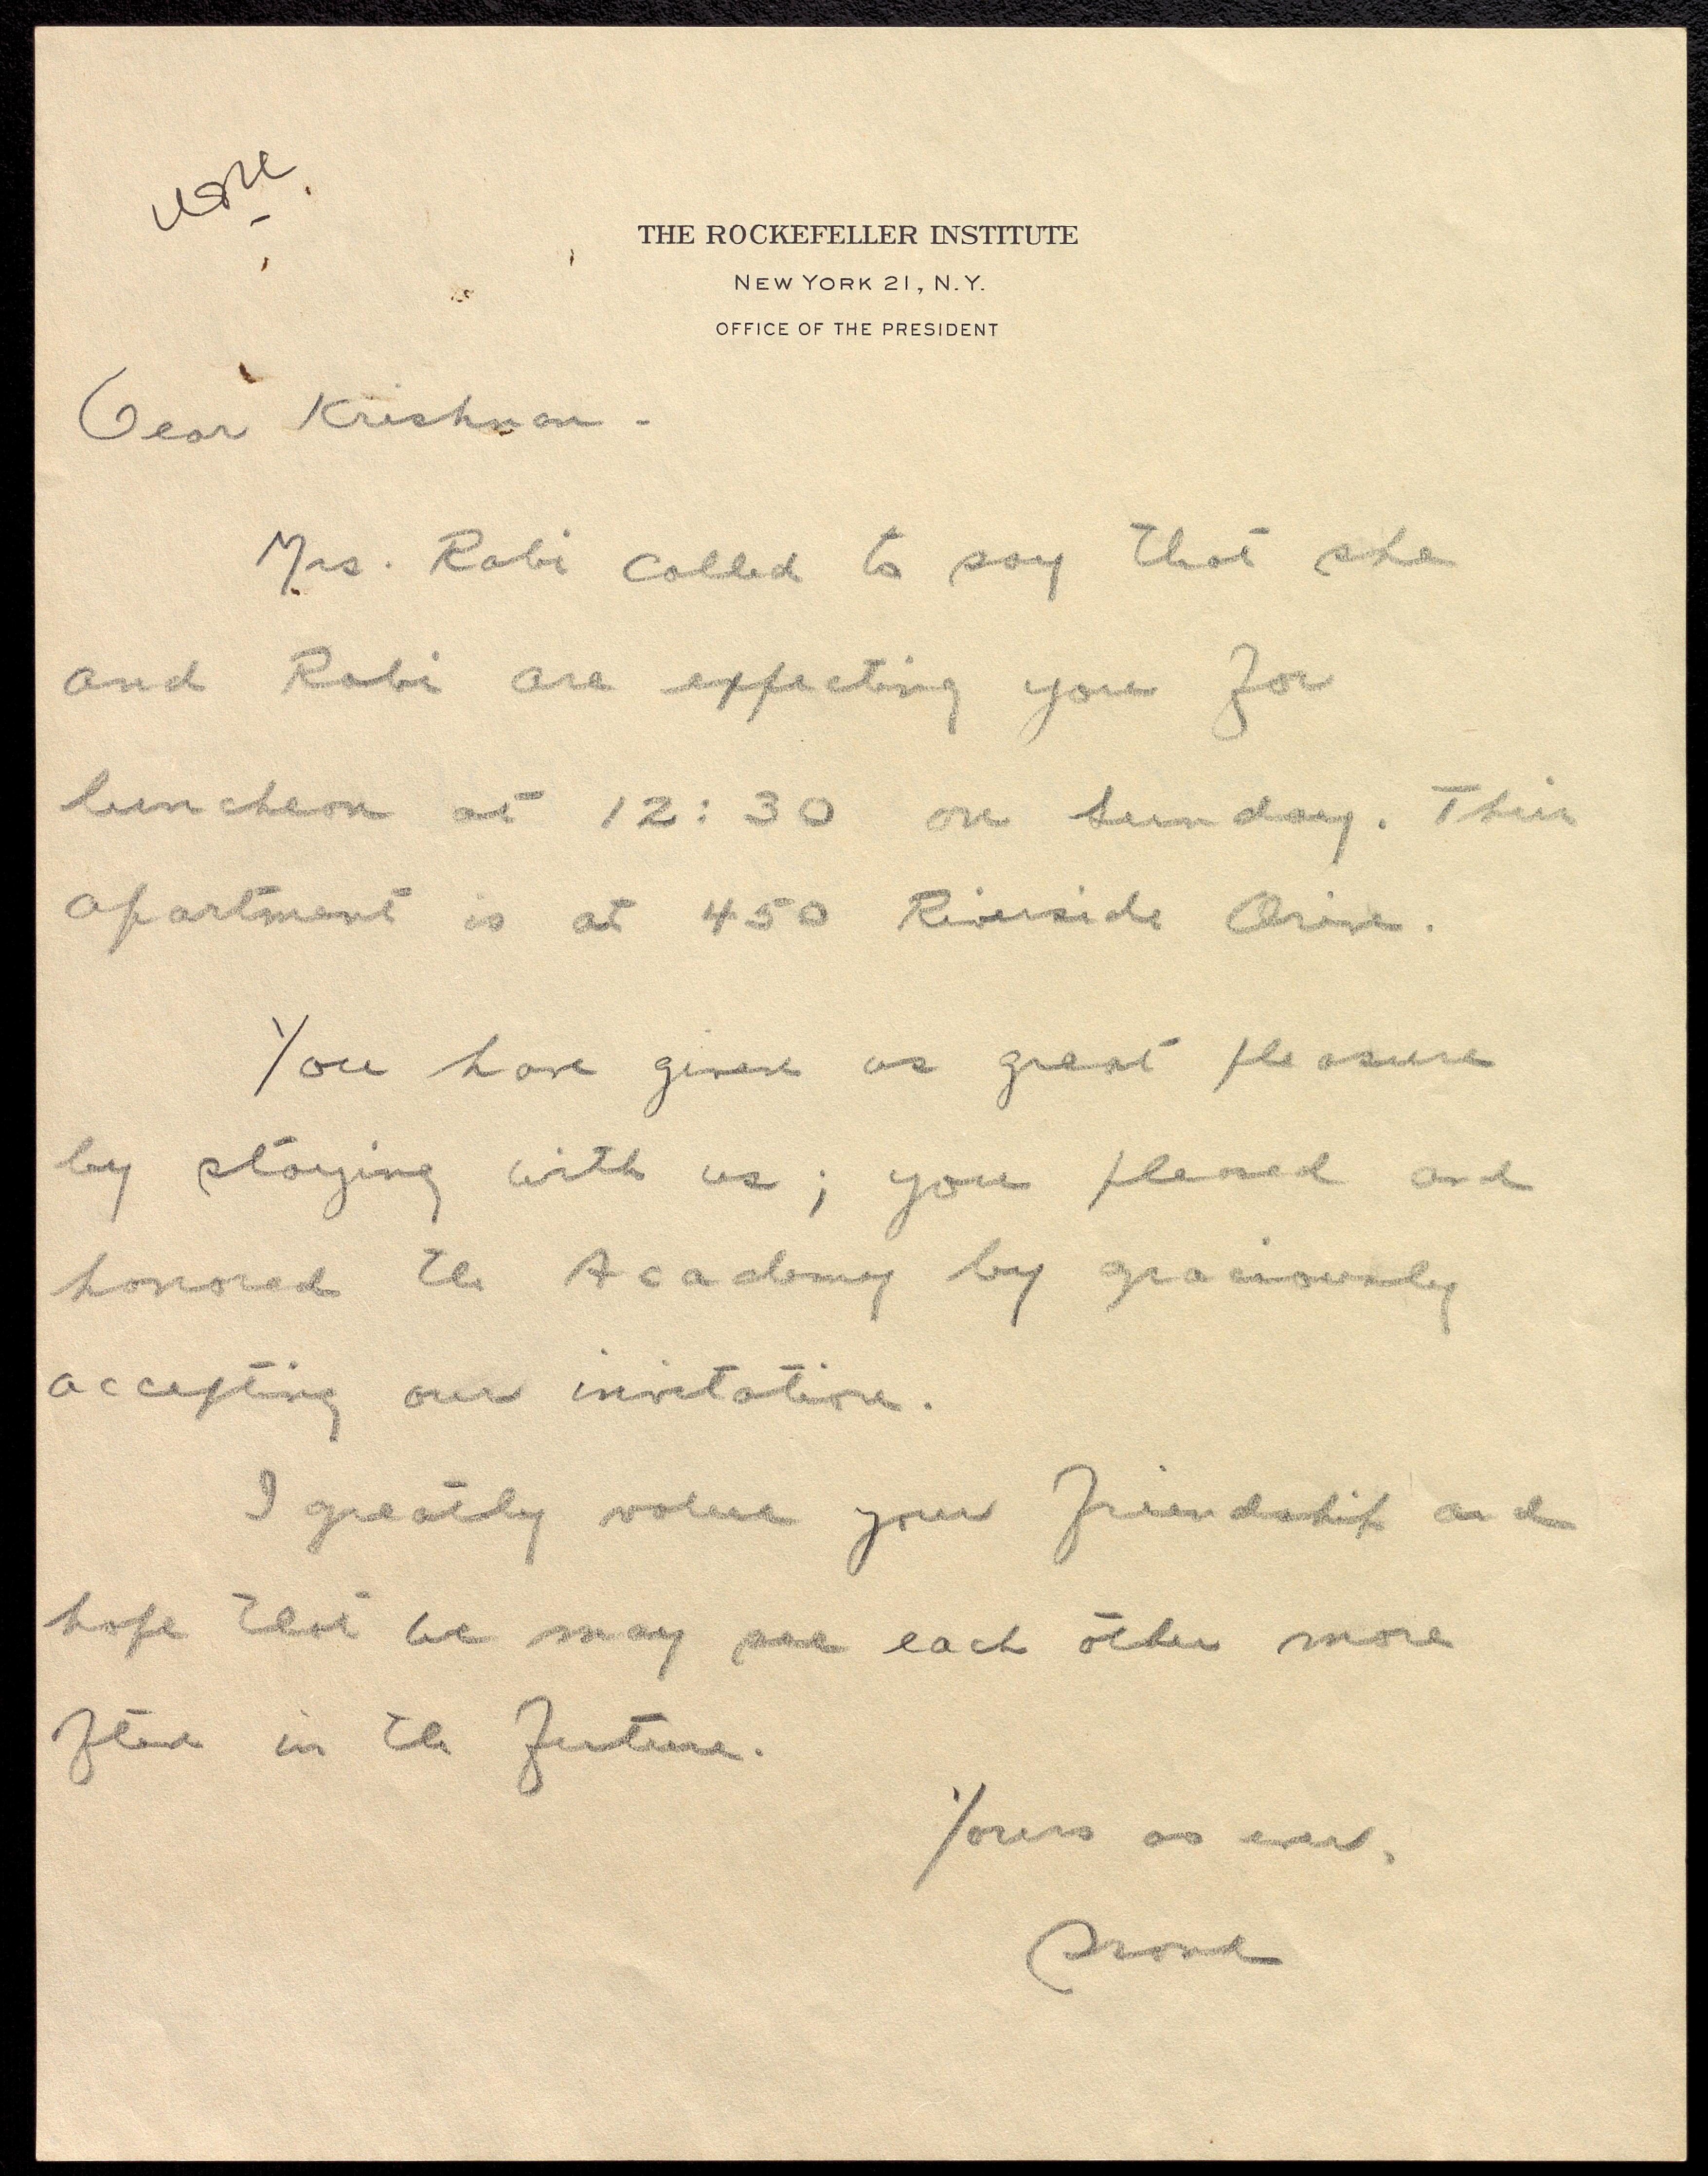 THE ROCKEFELLER INSTITUTE
NEW YORK 21, N.Y.
OFFICE OF THE PRESIDENT
Dear Krishnan -
Mrs. Rabi called to say that she
and Rabi are expecting you for
luncheon at 12:30 on Sunday. Their
apartment is at 450 Riverside Drive.
You have given us great pleasure
by staying with us; you pleased and
honored the Academy by graciously
accepting our invitation.
I greatly value your friendship and
hope that we may see each other more
often in the future.
Yours as ever,